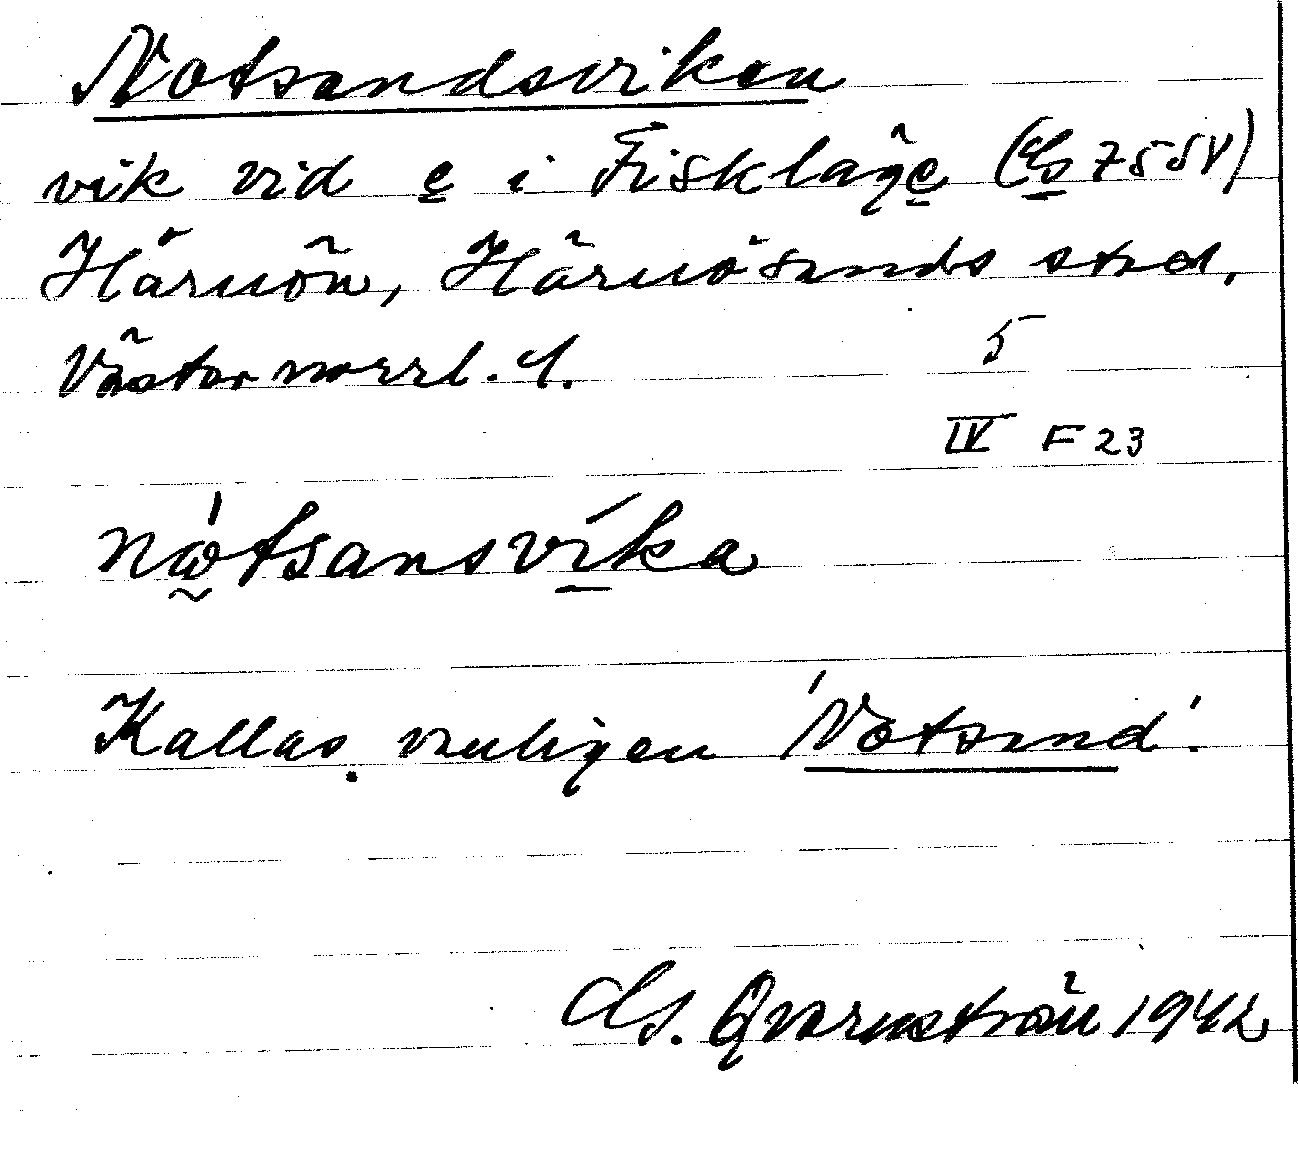 Notsandsviken
vik vid e i Fiskläge (Gs 75 SV)
Härnön, Härnösands stad,
Västernorrl. l.
5
IV F 23
nωtsansvika
Kallas vanligen 'Notsand'.
Gs. Qvarnström 1942